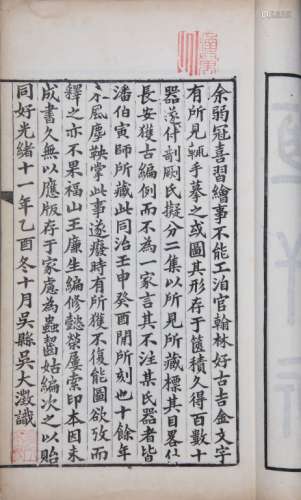 余弱冠喜習繪事不能工洎官翰林好古吉金文字
有所見輒手摹之或圖其形存于篋積久得百數十
器遂付剞劂氏擬分二集以所見所藏標其目畧仿
長安獲古編例而不為一家言其不注某氏器者皆
潘伯寅師所藏此同治壬申癸酉間所刻也十餘年
來風塵鞅掌此事遂廢時有所獲不復能圖欵改而
釋之亦不果福山王廉生編修懿榮屢索印本因未
成書久無以應版存于家慮為蟲齧姑編次之以貽
同好光緒十一年乙酉冬十月吳縣吳大澂識